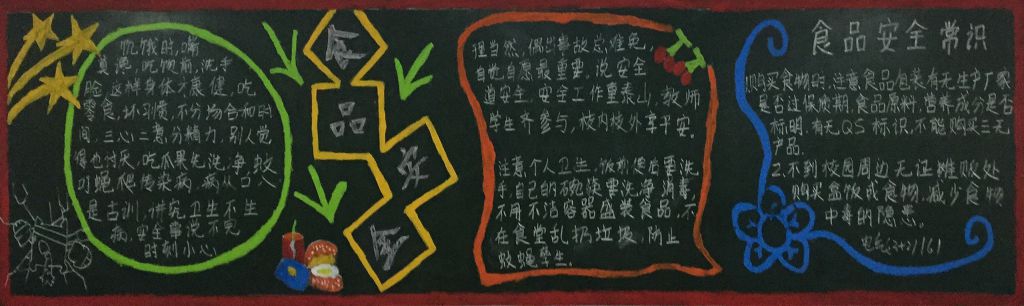 饥饿时,嘴
真馋,吃饭前,洗手
脸,这样身体才康健,吃
零食,坏习惯,不分场合和时
间,三心二意分精力,别人觉
得也讨厌,吃瓜果先洗净,蚊
叮蝇爬传染病,病从口入
是古训,讲究卫生不生
病,安全事说不完
时刻小心。
食
品
安
全
担当然,偶出事故总难免,
自觉自愿最重要,说安全
道安全,安全工作重泰山,教师
学生齐参与,校内校外享平安。
注意个人卫生,做到便后要洗
手自己的碗筷要洗净消毒,
不用不洁容器盛装食品,不
在食堂乱扔垃圾,防止
蚊蝇孳生。
食品安全常识
购买食物时,注意食品包装有无生产厂家
是否过保质期,食品原料,营养成分是否
标明,有无QS标识,不能购买三无
产品.
2.不到校园周边无证摊贩处
购买盒饭或食物,减少食物
中毒的隐患。